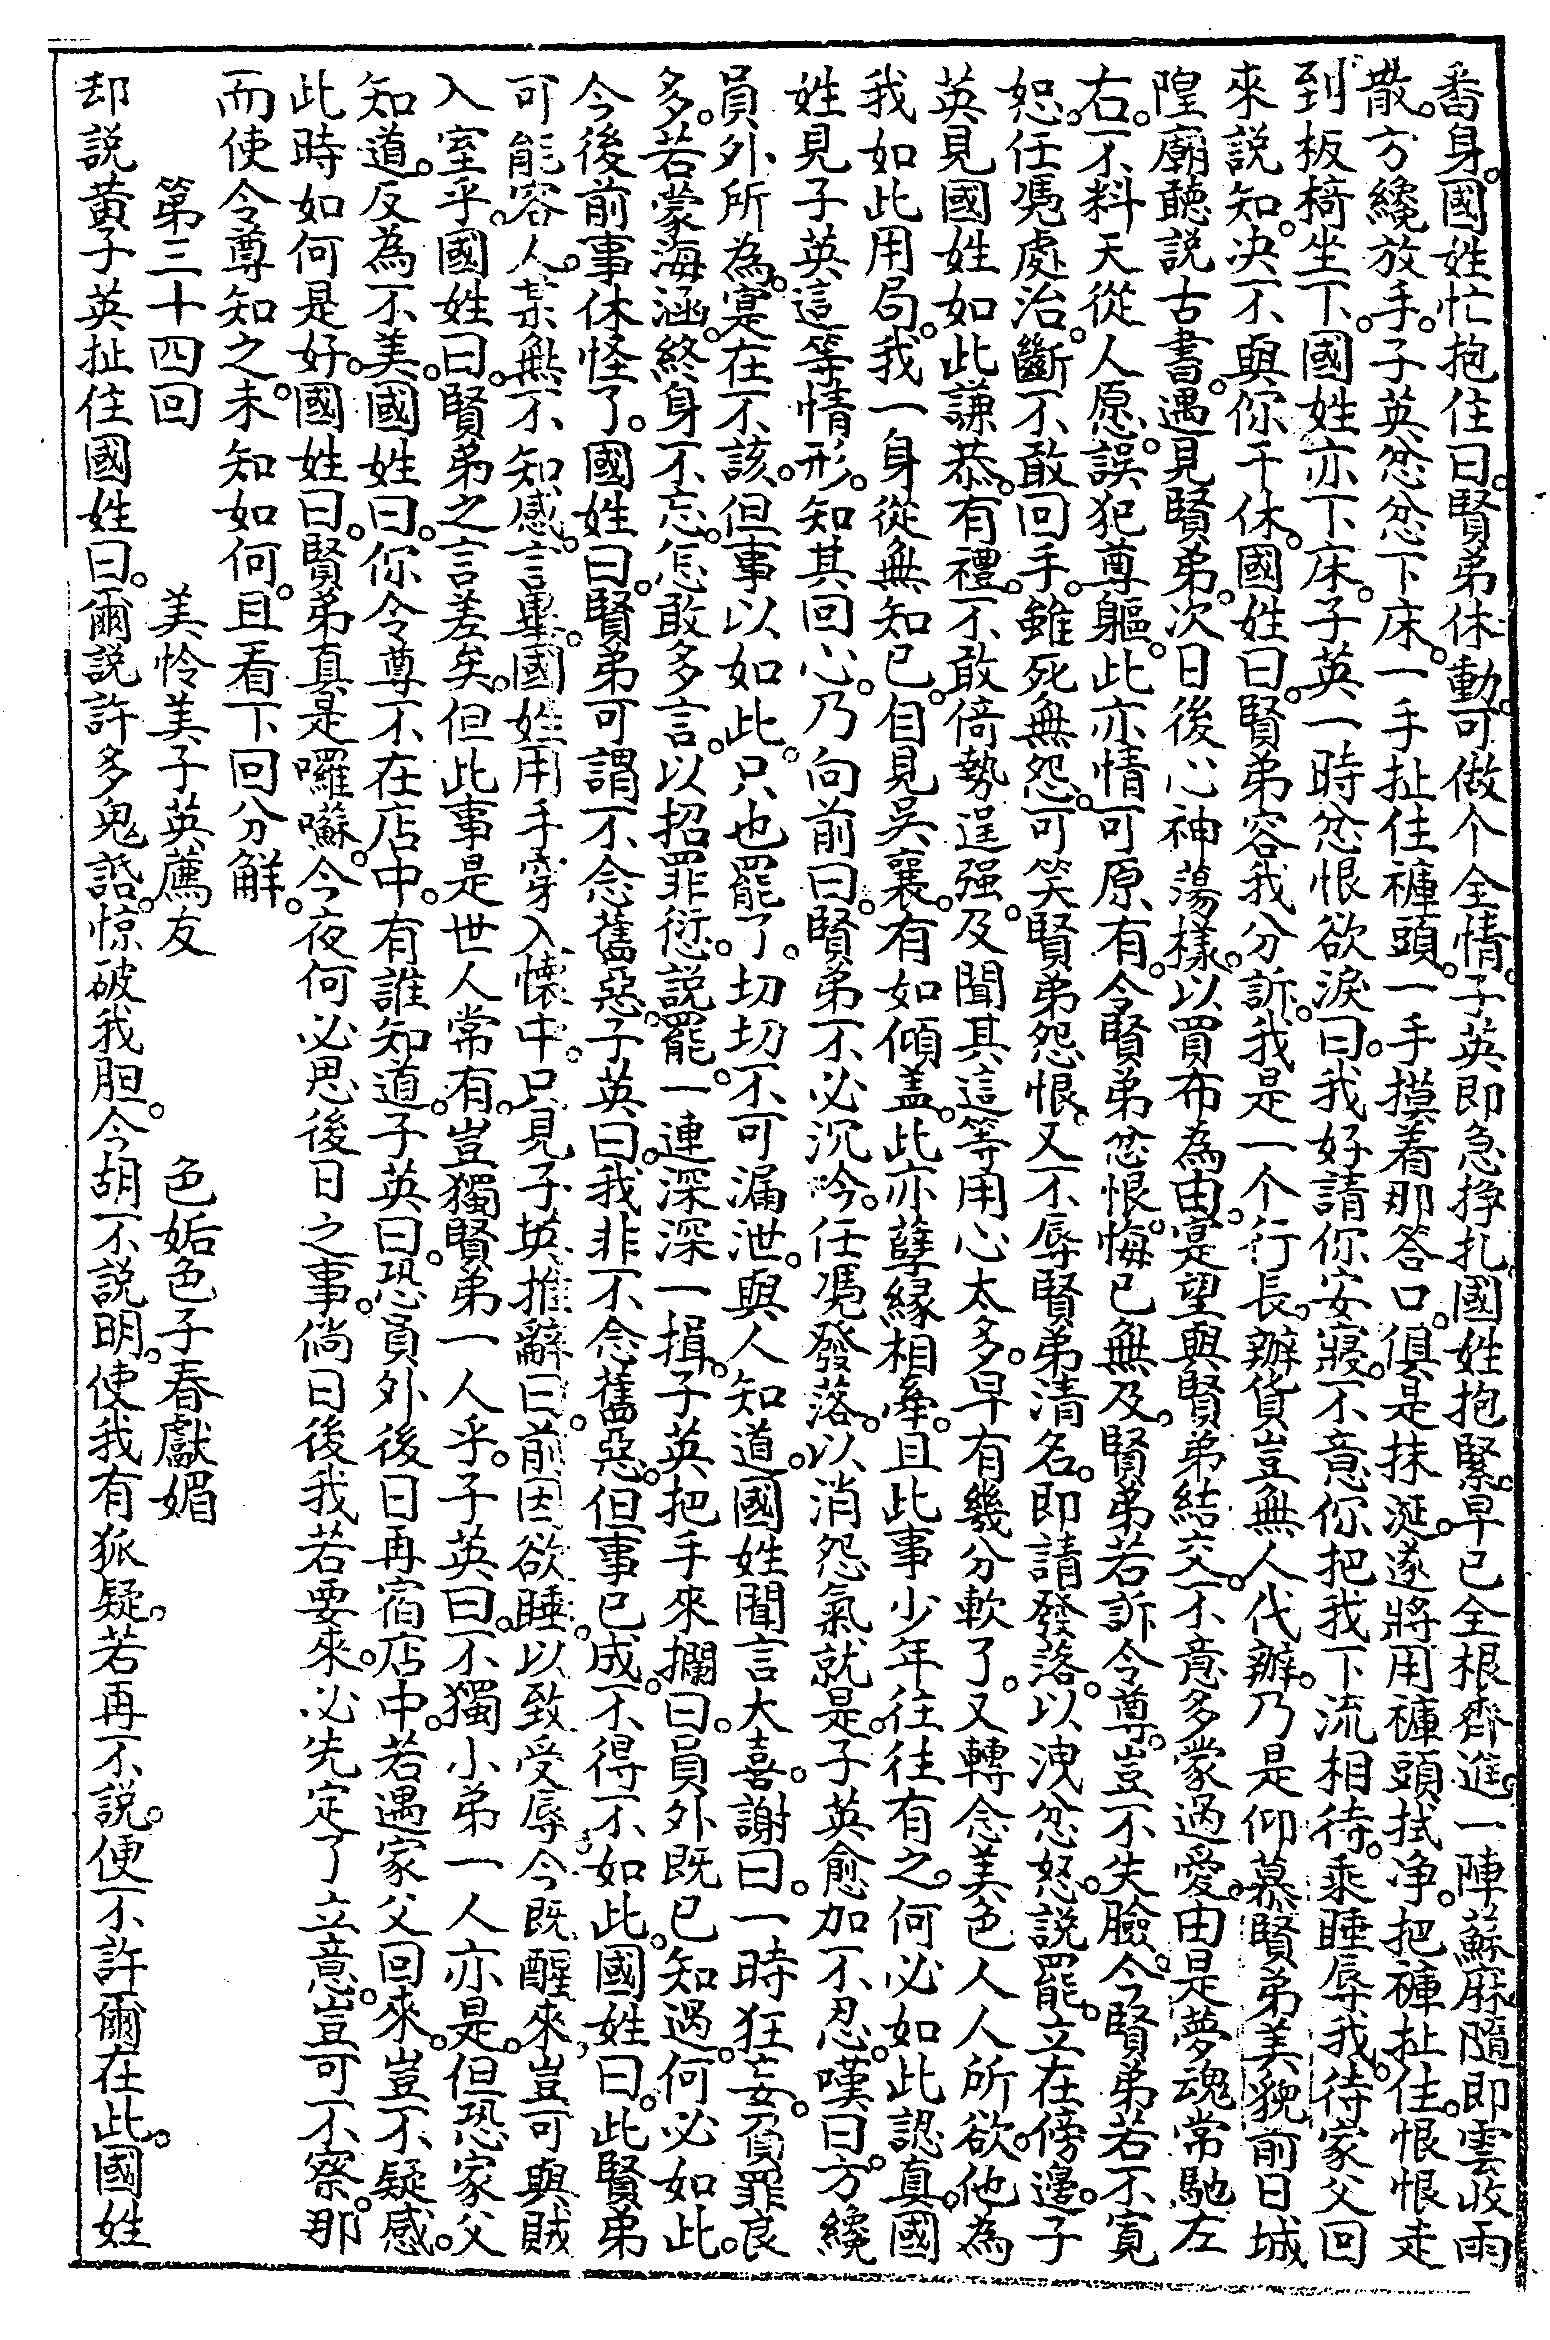 番身。國姓忙抱住曰。賢弟休動。可做个全情。子英即急掙扎。國姓抱緊。早已全根齊進。一陣蘇麻。隨即雲收雨
散。方纔放手。子英忿忿下床。一手扯住褲頭。一手摸着那答口。俱是抹涎。遂將用褲頭拭净。把褲扯住。恨恨走
到板椅坐下。國姓亦下床。子英一時忿恨欲淚曰。我好請你安寢。不意你把我下流相待。乘睡辱我。待家父回
來説知。决不與你干休。國姓曰。賢弟容我分訴。我是一个行長。辦貨豈無人代辦。乃是仰慕賢弟美貌。前日城
隍廟聽説古書。遇見賢弟。次日後心神蕩樣。以買布為由。寔望與賢弟結交。不意多蒙過愛。由是夢魂常馳左
右。不料天從人愿。誤犯尊軀。此亦情可原有。令賢弟忿恨。悔已無及。賢弟若訴令尊。豈不失臉。今賢弟若不寬
恕。任凴處治。斷不敢回手。雖死無怨。可笑賢弟怨恨。又不辱賢弟清名。即請發落。以洩忿怒。説罷。立在傍邊。子
英見國姓如此謙恭。有禮。不敢倚勢逞强。及聞其這等用心太多。早有幾分軟了。又轉念美色人人所欲。他為
我如此用局。我一身從無知己。自見吴襄。有如傾盖。此亦孽緣相牽。且此事少年往往有之。何必如此認真。國
姓見子英這等情形。知其回心。乃向前曰。賢弟不必沉吟。任凴發落。以消怨氣就是。子英愈加不忍。嘆曰。方纔
員外所為。寔在不該。但事以如此。只也罷了。切切不可漏泄。與人知道。國姓聞言大喜。謝曰。一時狂妄。負罪良
多。若蒙海涵。終身不忘。怎敢多言。以招罪愆。説罷。一連深深一揖。子英把手來攔曰。員外既已知過。何必如此。
今後前事休怪了。國姓曰。賢弟可謂不念舊惡。子英曰。我非不念舊惡。但事已成。不得不如此。國姓曰。此賢弟
可能容人。某無不知感。言畢。國姓用手穿入懷中。只見子英推辭曰。前因欲睡。以致受辱。今既醒來。豈可與賊
入室乎。國姓曰。賢弟之言差矣。但此事是世人常有。豈獨賢弟一人乎。子英曰。不獨小弟一人亦是。但恐家父
知道。反為不美。國姓曰。你令尊不在店中。有誰知道。子英曰。恐員外後日再宿店中。若遇家父回來。豈不疑感。
此時如何是好。國姓曰。賢弟真是囉囌。今夜何必思後日之事。倘日後我若要來。必先定了立意。豈可不察。那
而使令尊知之。未知如何。且看下回分解。
第三十四回　美怜美子英薦友　色妬色子春獻媚
却説黄子英扯住國姓曰。爾説許多鬼話。惊破我胆。今胡不説明。使我有狐疑。若再不説。便不許爾在此。國姓